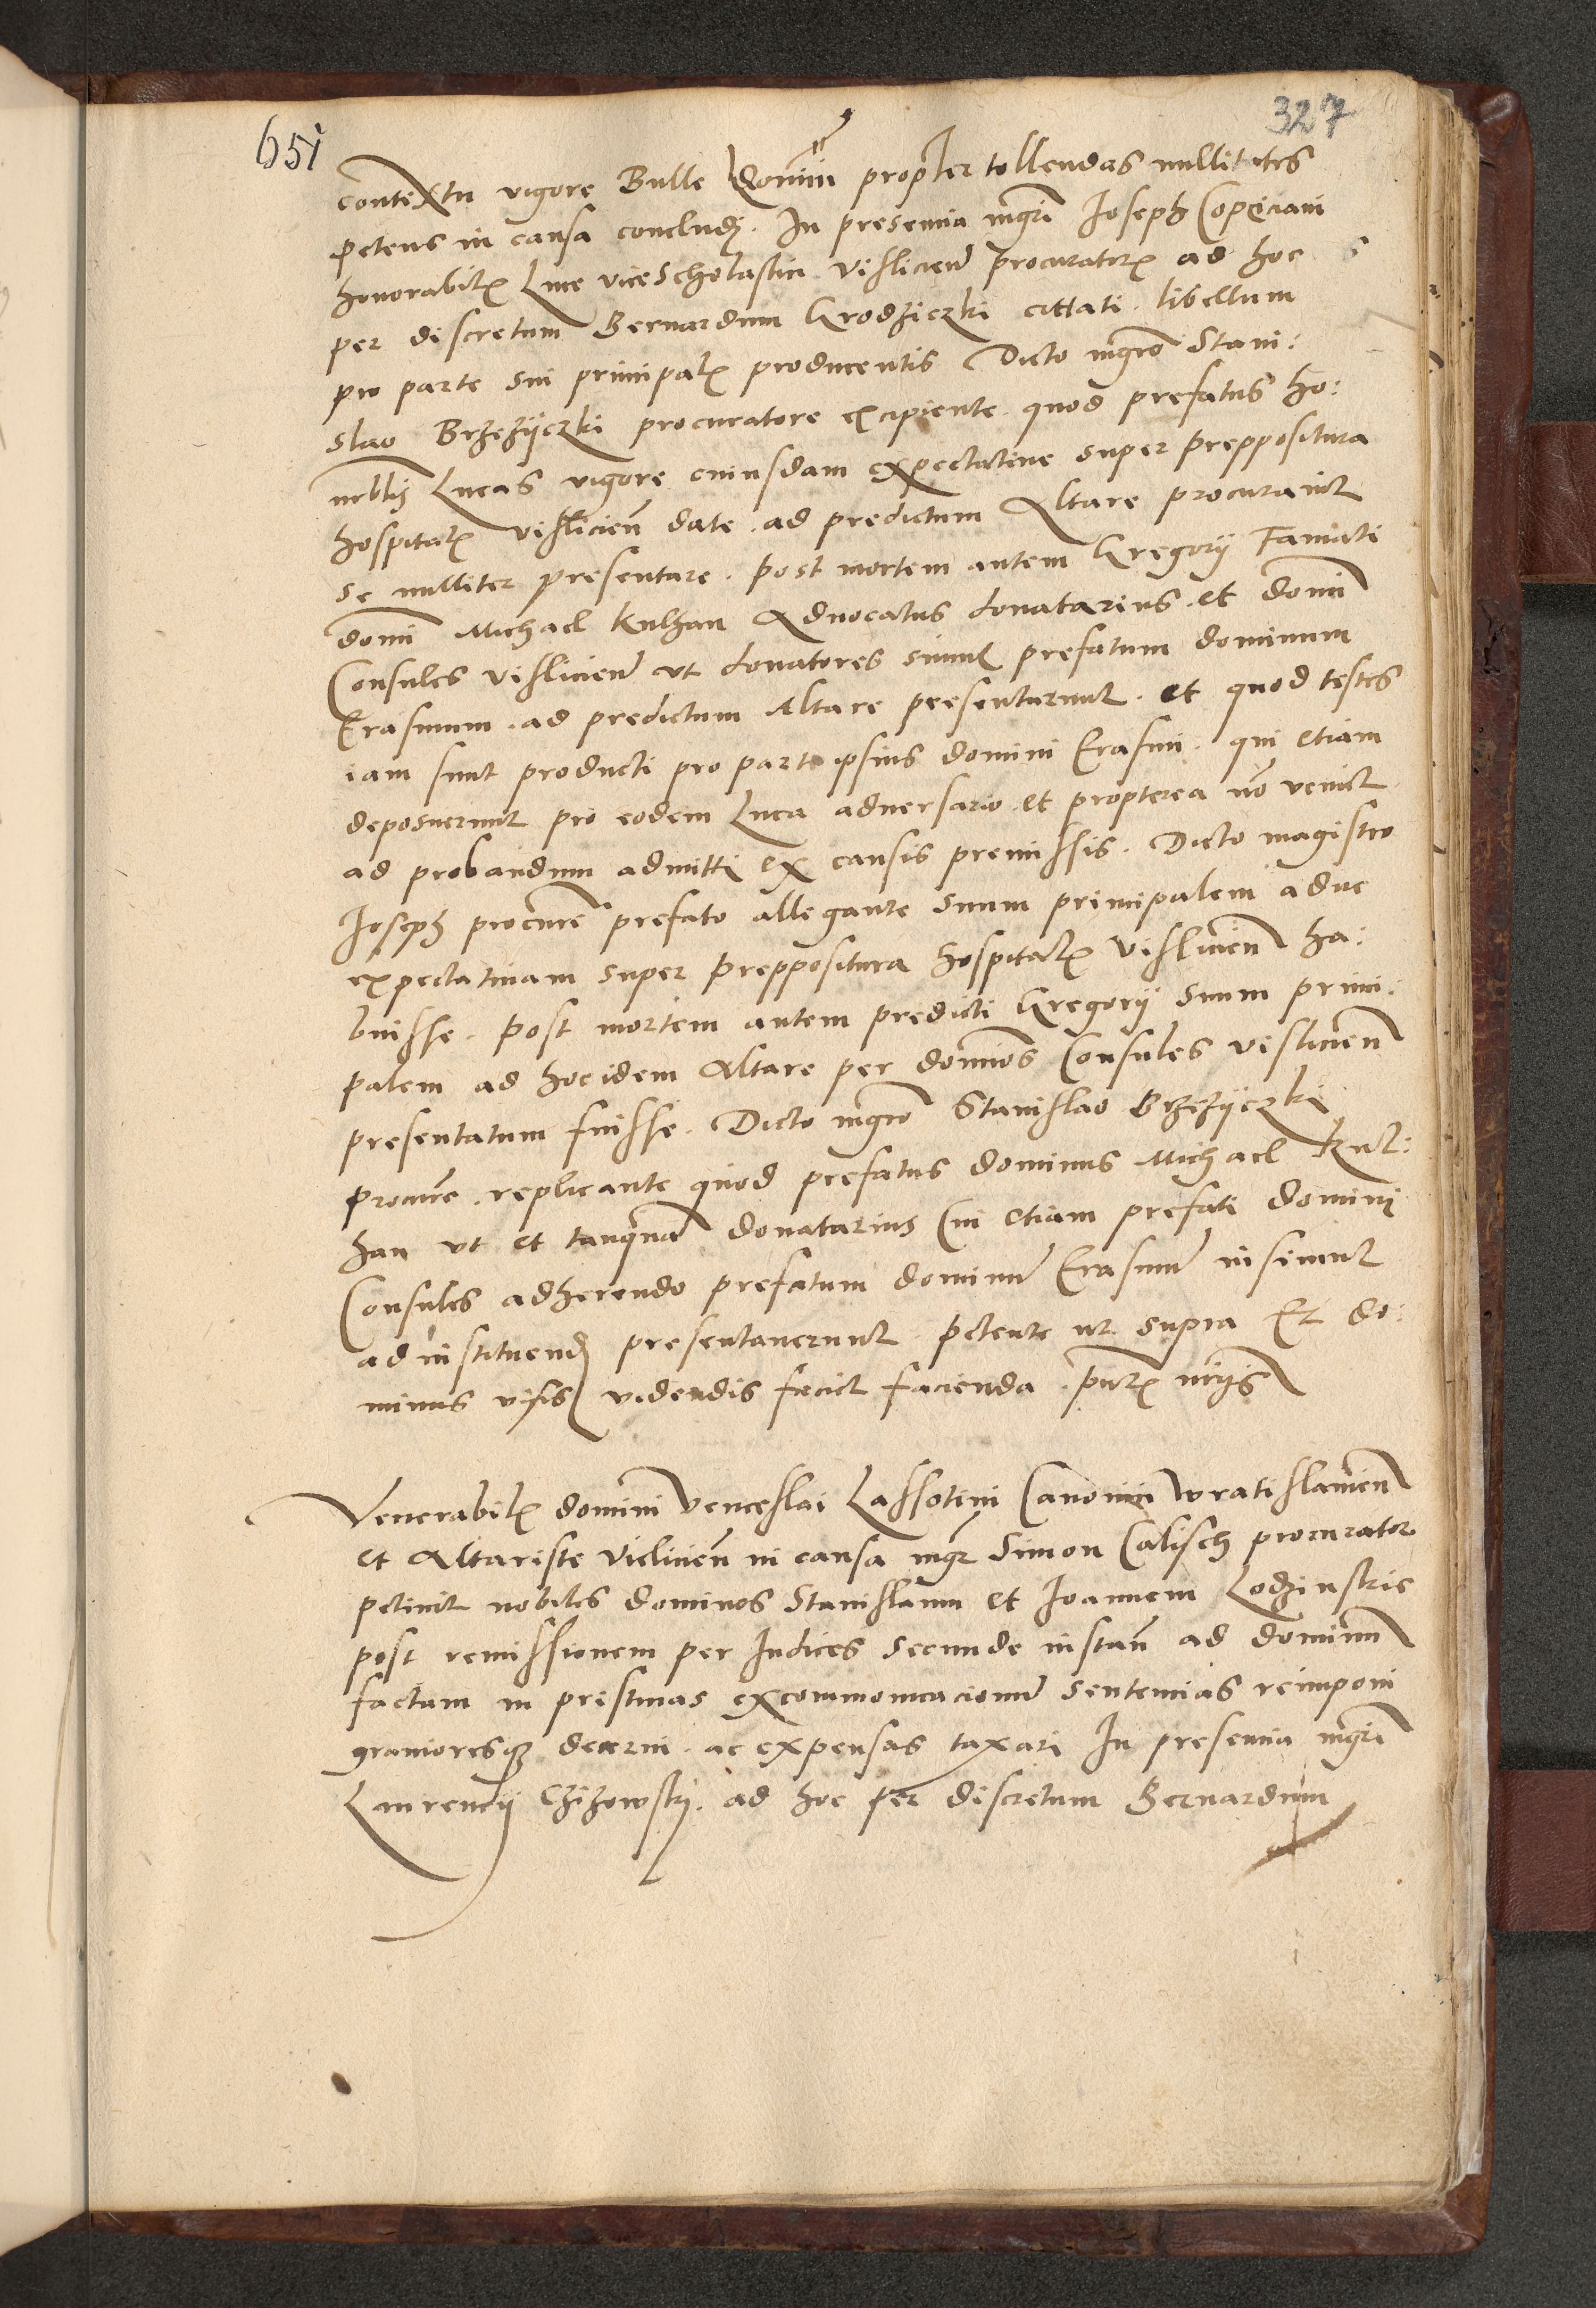 651
327
contextu vigore Bulle Domini propter tollendas nullitates
petens in causa concludj. In presentia mgri Joseph Copiciani
honorabilis Luce vicescholastici vislicien procuratoris ad hoc
per discretum Bernardum Grodziczki cittati. libellum
pro parte sui principalis producentis Dicto mgro Stani:
slao Brzezyczki procuratore excipiente quod prefatus ho:
norabilis Lucas vigore cuiusdam expectative super preppositura
hospitalis vislicien date. ad predictum Altare procuravit
se nulliter presentare. post mortem autem Gregorij Famuli
domini Michael Kulhan Advocatus donatarius. et domini
Consules vislicien ut donatores simul prefatum dominum
Erasmum. ad predictum Altare presentarunt. et quod testes
iam sunt producti pro parte ipsius domini Erasmi. qui etiam
deposuerunt pro eodem Luca adversario. et propterea non venit
ad probandum admitti ex causis premissis. Dicto magistro
Joseph procure prefato allegante suum principalem aduc
expectativam super preppositura hospitalis Vislicien ha:
buisse. post mortem autem predicti Gregorij suum princi:
palem ad hoc idem Altare per dominos Consules vislicien
presentatum fuisse. Dicto mgro Stanislao Brzezyczki
procure. replicante quod prefatus dominus Michael Kul:
han ut et tanquam donatarius Cui etiam prefati domini
Consules adherendo prefatum dominum Erasmum insimul
ad instituendum presentaverunt. petente ut supra Et do:
minus visis videndis fecit facienda.
Venerabilis domini Venceslai Lassotini Canonici wratislavien
et Altariste Vislicien in causa mgr Simon Calisch procurator
petivit nobiles dominos Stanislaum et Joannem Lodzinskie
post remissionem per Judices secunde instan ad dominum
factam in pristinas excommonicacionum sentencias reimponi
gravioresque decerni. ac expensas taxari In presentia mgri
Laurencij Czizowskj. ad hoc per discretum Bernardum